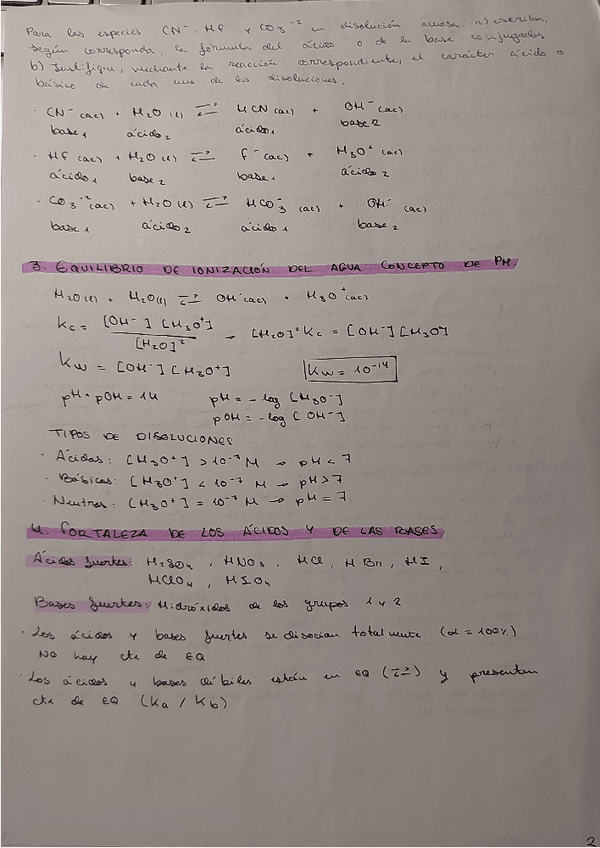 Para las especies CN⁻, HF y CO₃⁻² en disolución acuosa: a) escriban,
según corresponda, la fórmula del ácido o de la base conjugados
b) Justifique, mediante la reacción correspondiente, el carácter ácido o
básico de cada una de las disoluciones.
· CN⁻(ac) + H₂O(l) ⇄ HCN(ac) + OH⁻(ac)
base₁ ácido₂ ácido₁ base₂
· HF(ac) + H₂O(l) ⇄ F⁻(ac) + H₃O⁺(ac)
ácido₁ base₂ base₁ ácido₂
· CO₃⁻²(ac) + H₂O(l) ⇄ HCO₃⁻(ac) + OH⁻(ac)
base₁ ácido₂ ácido₁ base₂
3. EQUILIBRIO DE IONIZACIÓN DEL AGUA. CONCEPTO DE PH.
H₂O(l) + H₂O(l) ⇄ OH⁻(ac) + H₃O⁺(ac)
Kc = [OH⁻][H₃O⁺] / [H₂O]² → [H₂O]² Kc = [OH⁻][H₃O⁺]
Kw = [OH⁻][H₃O⁺] Kw = 10⁻¹⁴
pH + pOH = 14 pH = -log [H₃O⁺]
pOH = -log [OH⁻]
TIPOS DE DISOLUCIONES
· Ácidas: [H₃O⁺] > 10⁻⁷ M → pH < 7
· Básicas: [H₃O⁺] < 10⁻⁷ M → pH > 7
· Neutras: [H₃O⁺] = 10⁻⁷ M → pH = 7
4. FORTALEZA DE LOS ÁCIDOS Y DE LAS BASES
Ácidos fuertes: H₂SO₄, HNO₃, HCl, HBr, HI,
HClO₄, HIO₄
Bases fuertes: Hidróxidos de los grupos 1 y 2
· Los ácidos y bases fuertes se disocian totalmente (α = 100%)
NO hay cte de EQ
· Los ácidos y bases débiles están en EQ (⇄) y presentan
cte de EQ (Ka / Kb)
2